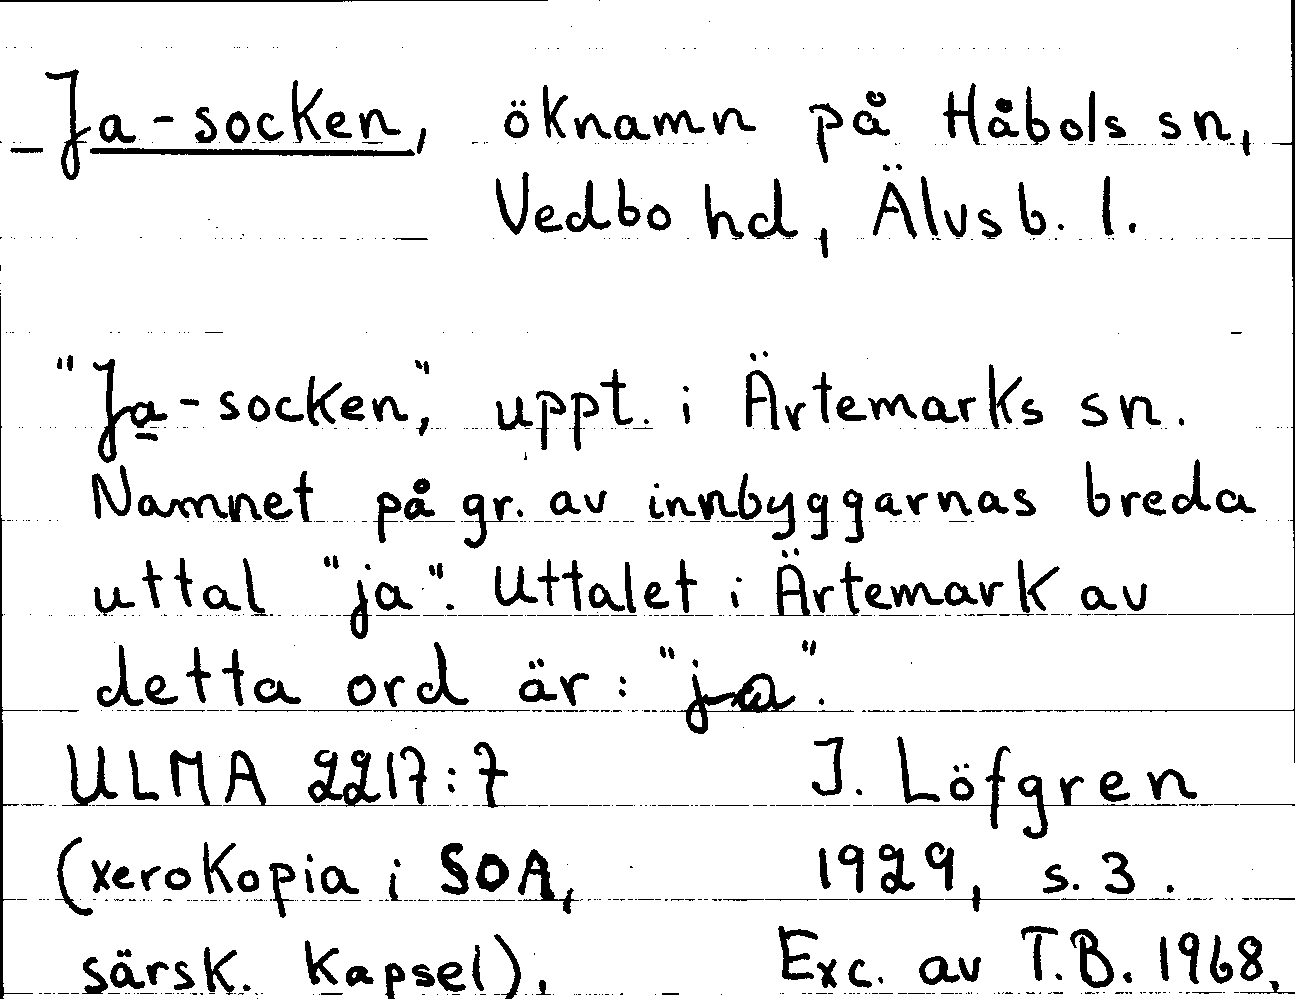 Ja-socken, öknamn på Håbols sn,
Vedbo hd, Älvsb. l.
"Ja-socken", uppt. i Ärtemarks sn.
Namnet på gr. av innbyggarnas breda
uttal "ja". Uttalet i Ärtemark av
detta ord är: "ja".
ULMA 2217:7 J. Löfgren
(xerokopia i SOA, 1929, s. 3.
särsk. kapsel). Exc. av T.B. 1968.